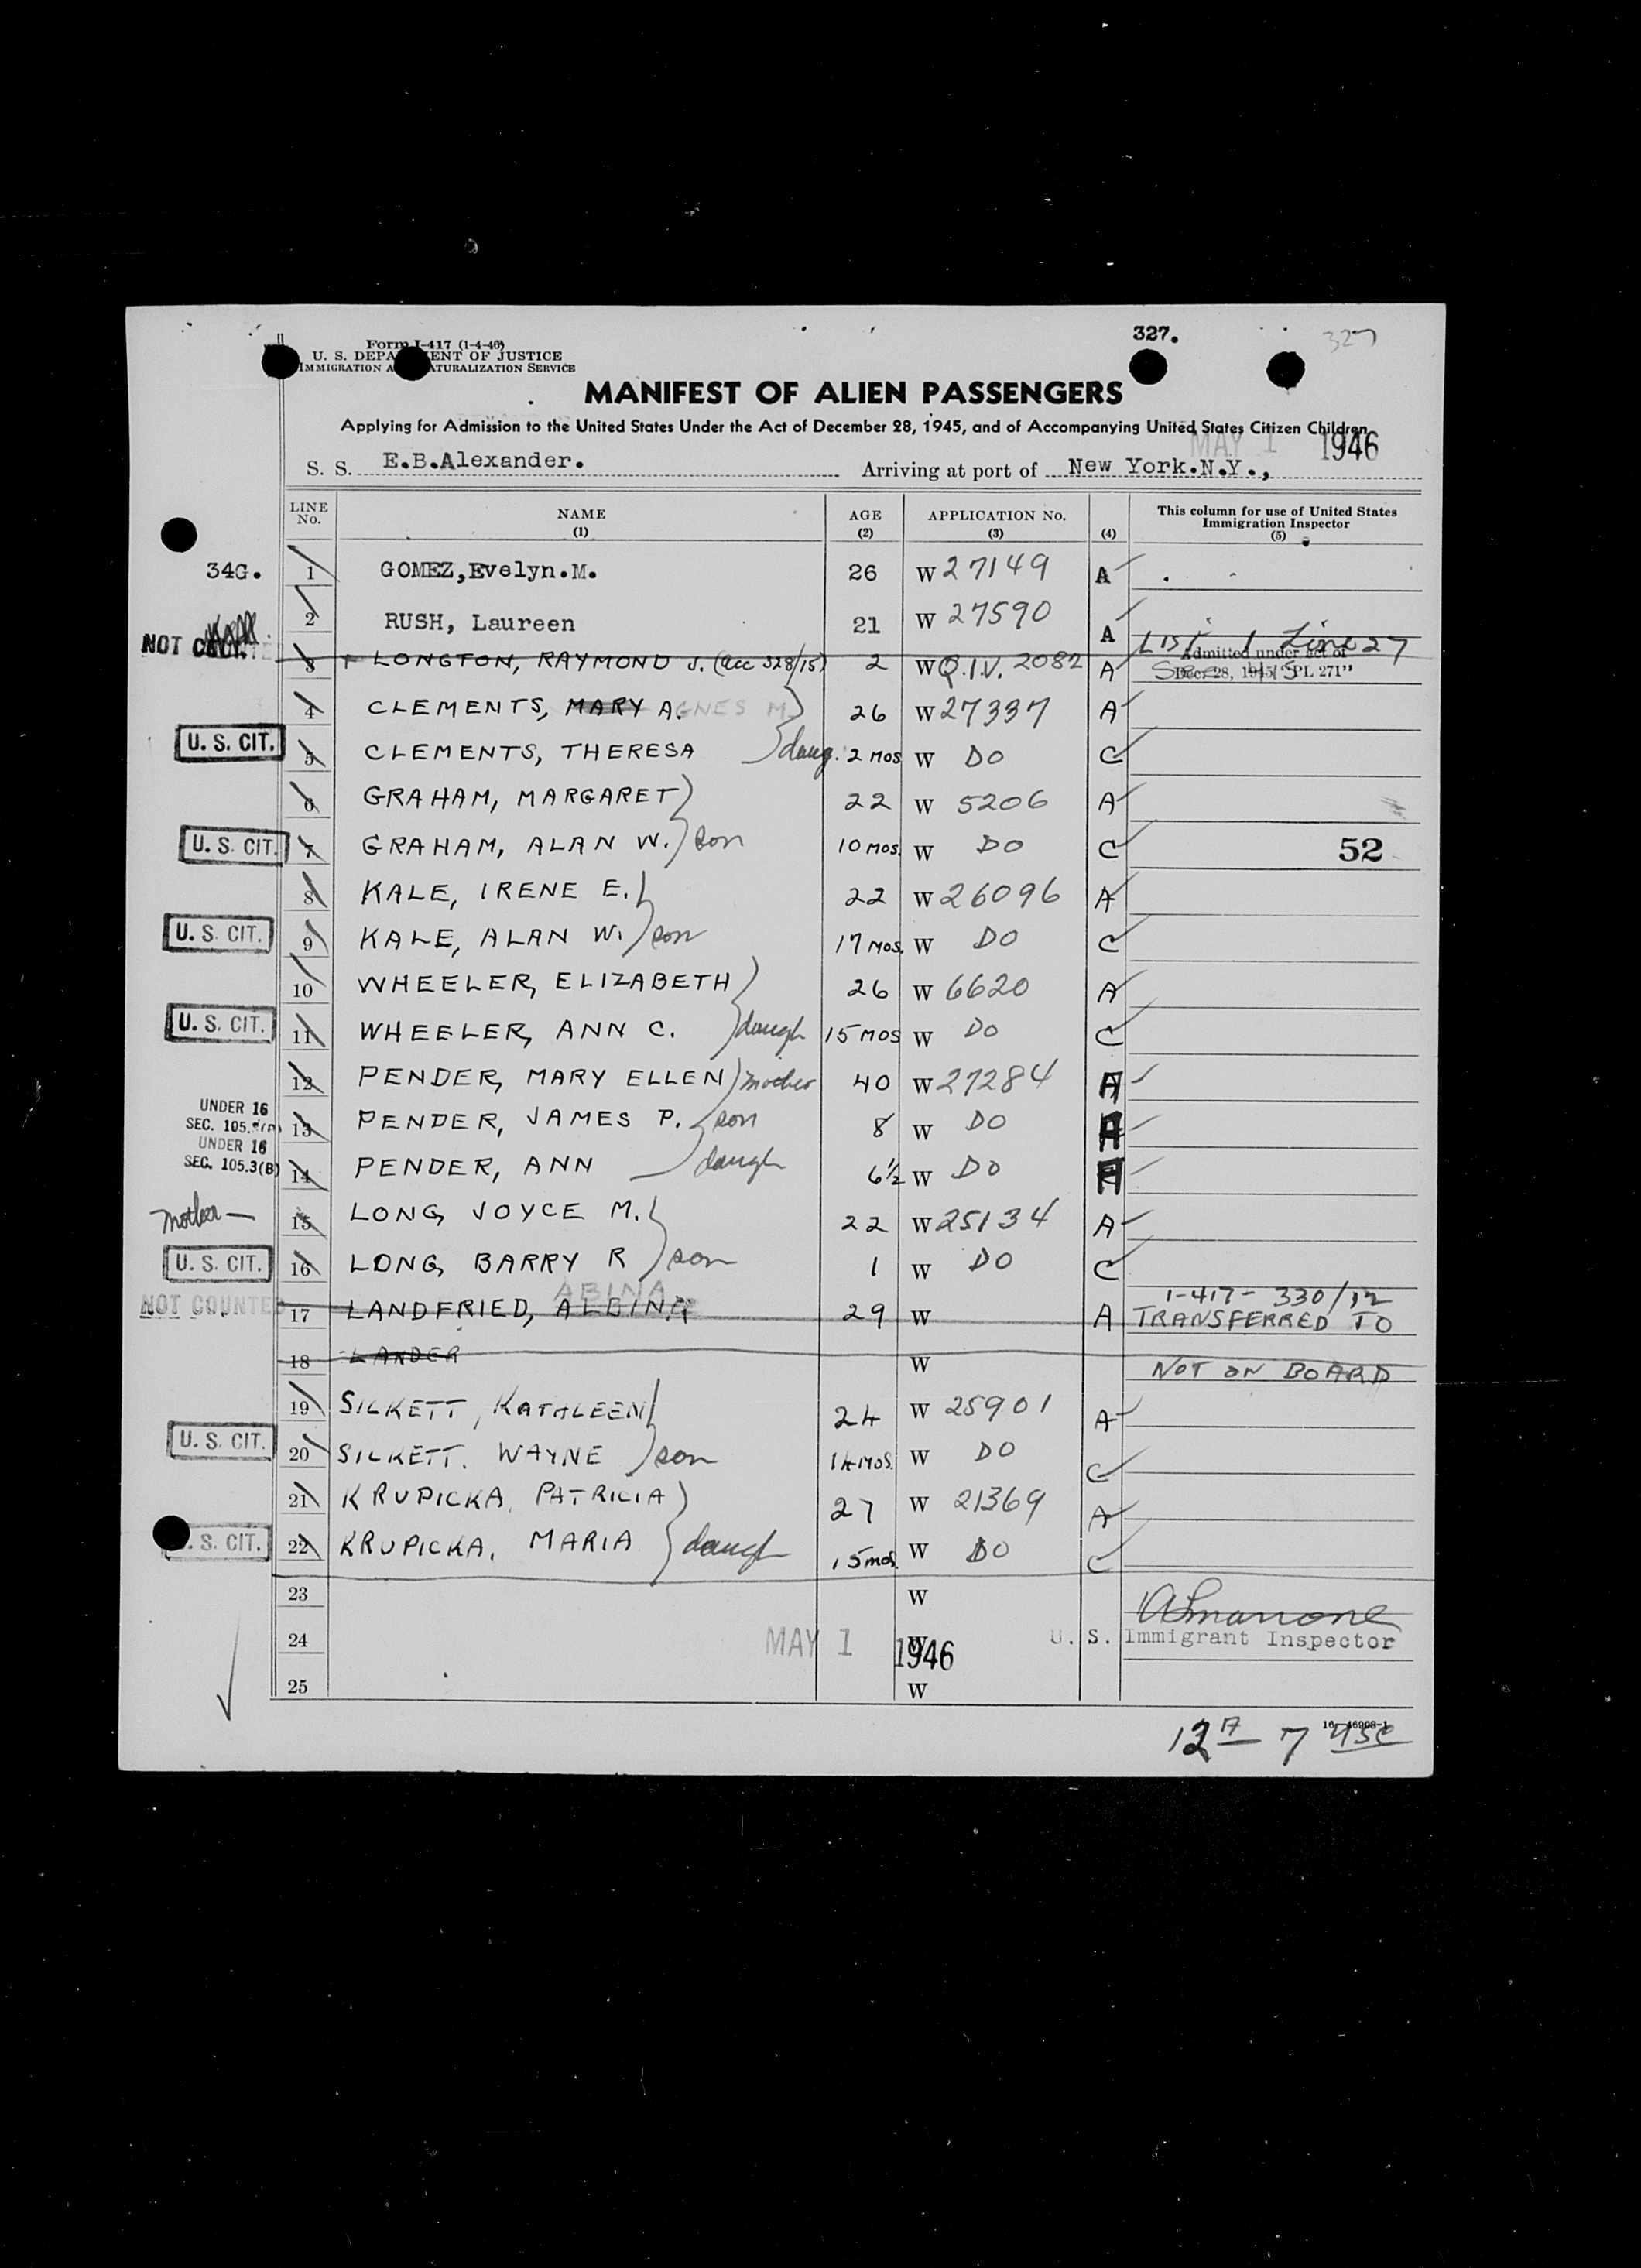 327. 327
Form I-417 (1-4-46)
U. S. DEPA ENT OF JUSTICE
IMMIGRATION A TURALIZATION SERVICE
MANIFEST OF ALIEN PASSENGERS
Applying for Admission to the United States Under the Act of December 28, 1945, and of Accompanying United States Citizen Children
MAY 1 1946
S. S. E.B.Alexander. Arriving at port of New York.N.Y.,
LINE No. NAME (1) AGE (2) APPLICATION No. (3) (4) This column for use of United States Immigration Inspector (5)
34G. 1 GOMEZ,Evelyn.M. 26 W 27149 A
2 RUSH, Laureen 21 W 27590 A
NOT 3 LONGTON, RAYMOND J. 328/15) 2 W Q.I.V. 2082 A LIST 1 Line 27
Admitted under act of
Dec. 28, 1945 "PL 271"
4 CLEMENTS, MARY A.GNES M 26 W 27337 A
U. S. CIT. 5 CLEMENTS, THERESA daug. 2 MOS W DO C
6 GRAHAM, MARGARET 22 W 5206 A
U. S. CIT. 7 GRAHAM, ALAN W. son 10 MOS. W DO C 52
8 KALE, IRENE E. 22 W 26096 A
U. S. CIT. 9 KALE, ALAN W. son 17 MOS. W DO C
10 WHEELER, ELIZABETH 26 W 6620 A
U. S. CIT. 11 WHEELER, ANN C. daugh 15 MOS W DO C
12 PENDER, MARY ELLEN mother 40 W 27284 A
UNDER 16
SEC. 105. 13 PENDER, JAMES P. son 8 W DO A
UNDER 16
SEC. 105.3(B) 14 PENDER, ANN daugh 6½ W DO A
Mother — 15 LONG, JOYCE M. 22 W 25134 A
U. S. CIT. 16 LONG, BARRY R son 1 W DO C
ABINA 1-417- 330/12
NOT COUNTED 17 LANDFRIED, ALBINA 29 W A TRANSFERRED TO
18 LANDER W NOT ON BOARD
19 SILKETT, KATHLEEN 24 W 25901 A
U. S. CIT. 20 SILKETT. WAYNE son 14 MOS. W DO C
21 KRUPICKA, PATRICIA 27 W 21369 A
. S. CIT. 22 KRUPICKA, MARIA daugh 15 mos. W DO C
23 W
24 MAY 1 1946 W U. S. Immigrant Inspector
25 W
16-46998-1
12 A 7 USC